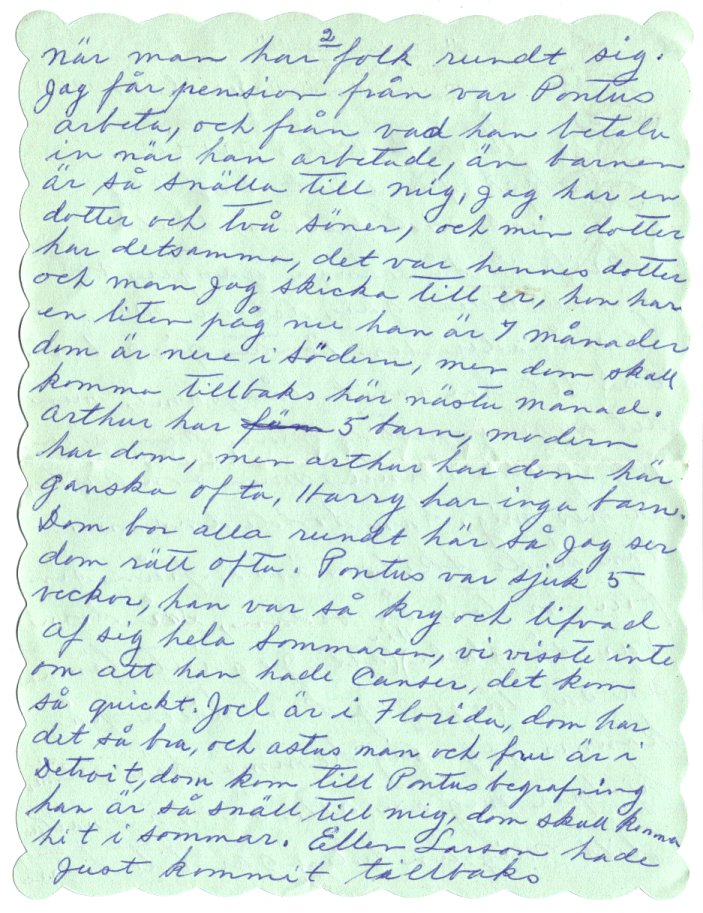 2
när man har folk rundt sig.
Jag får pension från var Pontus
arbeta, och från vad han betala
in när han arbetade, än barnen
är så snälla till mig, Jag har en
dotter och två söner, och min dotter
har detsamma, det var hennes dotter
och man Jag skicka till er, hon har
en liten påg nu han är 7 månader
dom är nere i södern, men dom skall
komma tillbaks här nästa månad.
Arthur har fäm 5 barn, modern
har dom, men arthur har dom här
ganska ofta, Harry har inga barn.
Dom bor alla rundt här så Jag ser
dom rätt ofta. Pontus var sjuk 5
veckor, han var så kry och lifvad
af sig hela sommaren, vi visste inte
om att han hade Canser, det kom
så quickt. Joel är i Florida, dom har
det så bra, och astas man och fru är i
Detroit, dom kom till Pontus begrafning
han är så snäll till mig, dom skall komma
hit i sommar. Ellen Larson hade
Just kommit tillbaks